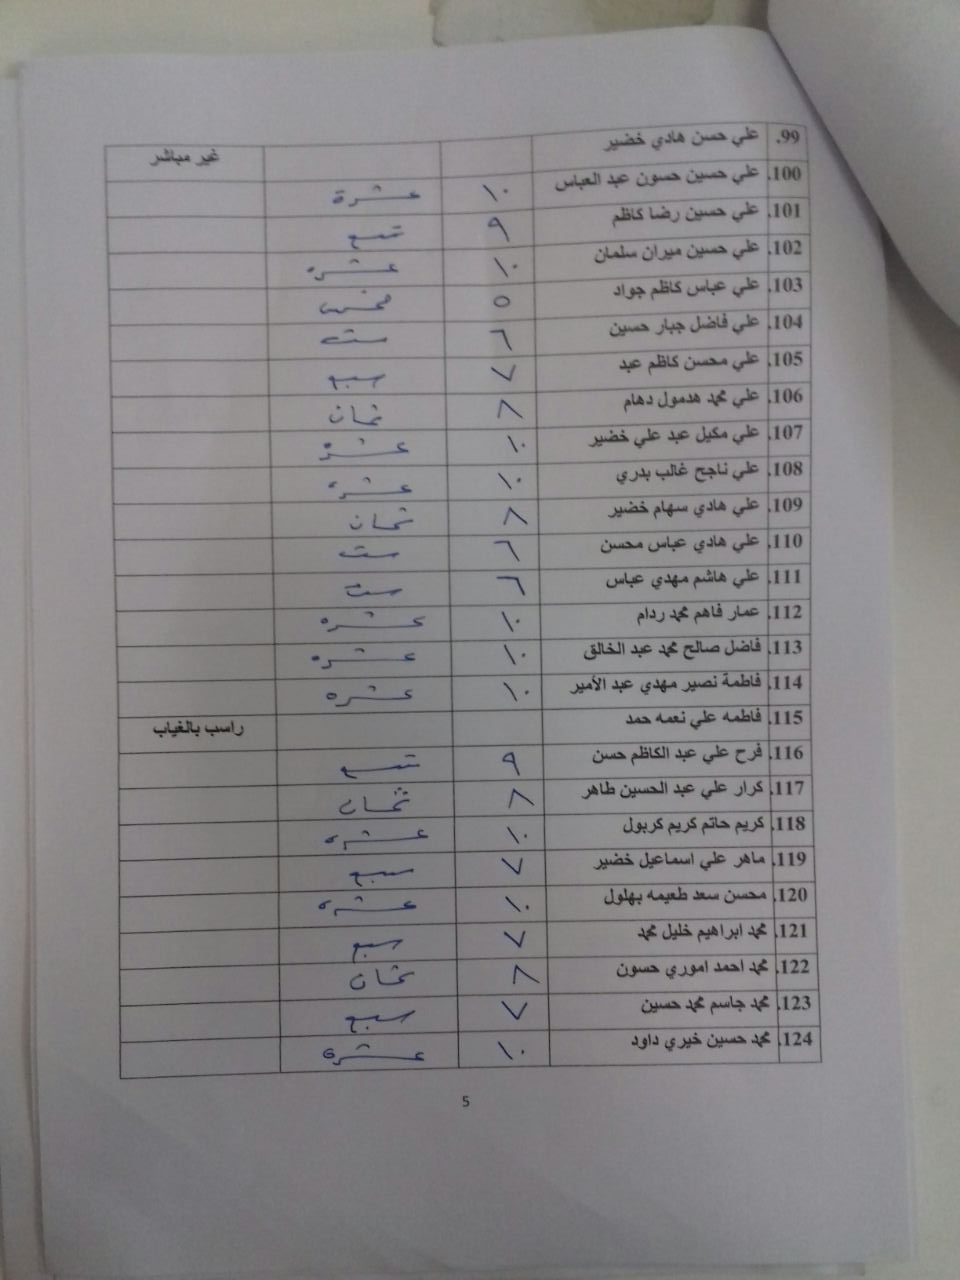 99. علي حسن هادي خضير غير مباشر
100. علي حسين حسون عبد العباس ١٠ عشرة
101. علي حسين رضا كاظم ٩ تسع
102. علي حسين ميران سلمان ١٠ عشره
103. علي عباس كاظم جواد ٥ خمس
104. علي فاضل جبار حسين ٦ ست
105. علي محسن كاظم عبد ٧ سبع
106. علي محمد هدمول دهام ٨ ثمان
107. علي مكيل عبد علي خضير ١٠ عشرة
108. علي ناجح غالب بدري ١٠ عشره
109. علي هادي سهام خضير ٨ ثمان
110. علي هادي عباس محسن ٦ ست
111. علي هاشم مهدي عباس ٦ ست
112. عمار فاهم محمد ردام ١٠ عشره
113. فاضل صالح محمد عبد الخالق ١٠ عشره
114. فاطمة نصير مهدي عبد الأمير ١٠ عشره
115. فاطمه علي نعمه حمد راسب بالغياب
116. فرح علي عبد الكاظم حسن ٩ تسع
117. كرار علي عبد الحسين طاهر ٨ ثمان
118. كريم حاتم كريم كربول ١٠ عشره
119. ماهر علي اسماعيل خضير ٧ سبع
120. محسن سعد طعيمه بهلول ١٠ عشره
121. محمد ابراهيم خليل محمد ٧ سبع
122. محمد احمد اموري حسون ٨ ثمان
123. محمد جاسم محمد حسين ٧ سبع
124. محمد حسين خيري داود ١٠ عشرة
5